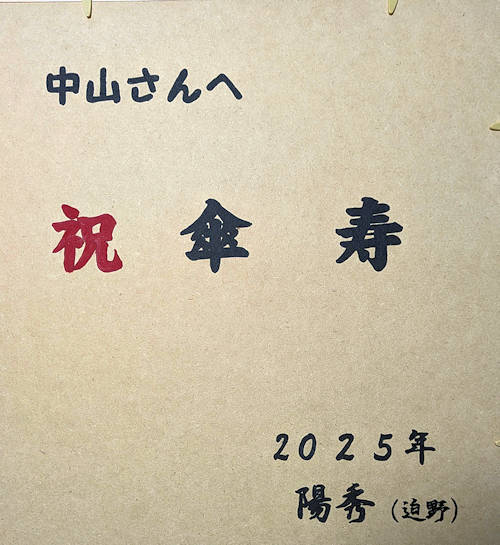 中山さんへ
祝 傘 寿
2025年
陽秀(迫野)